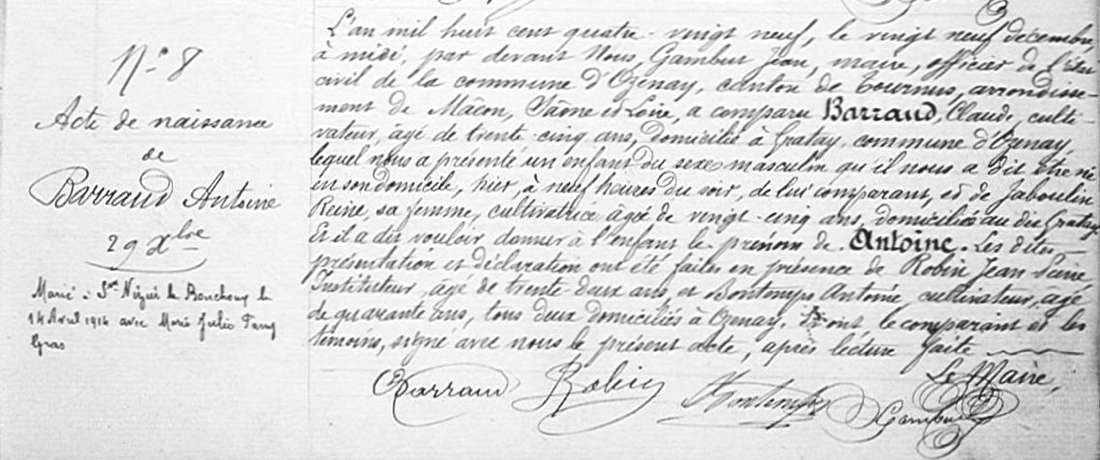 N° 8
Acte de naissance
de
Barraud Antoine
29 Xbre
Marié à
14 Avril 1914 avec Marie Julie
Gras
L'an mil huit cent quatre-vingt neuf, le vingt neuf décembre
à midi, par devant Nous, Gambut Jean, maire, officier de l'état
civil de la commune d'Ozenay, canton de Tournus, arrondisse-
ment de Mâcon, Saône et Loire, a comparu Barraud, Claude, culti-
vateur, âgé de trente-cinq ans, domicilié à Gratay, commune d'Ozenay,
lequel nous a présenté un enfant du sexe masculin qu'il nous a dit être né
en son domicile, hier, à neuf heures du soir, de lui comparant, et de Jaboulin
Reine, sa femme, cultivatrice âgée de vingt-cinq ans, domiciliée au dit Gratay
Et il a dit vouloir donner à l'enfant le prénom de Antoine. Les dites
présentation et déclaration ont été faites en présence de Robin Jean
Instituteur, âgé de trente deux ans, et Bontemps Antoine, cultivateur, âgé
de quarante ans, tous deux domiciliés à Ozenay. Et ont, le comparant et les
témoins, signé avec nous le présent acte, après lecture faite
Le Maire,
Barraud Robin Bontemps Gambut